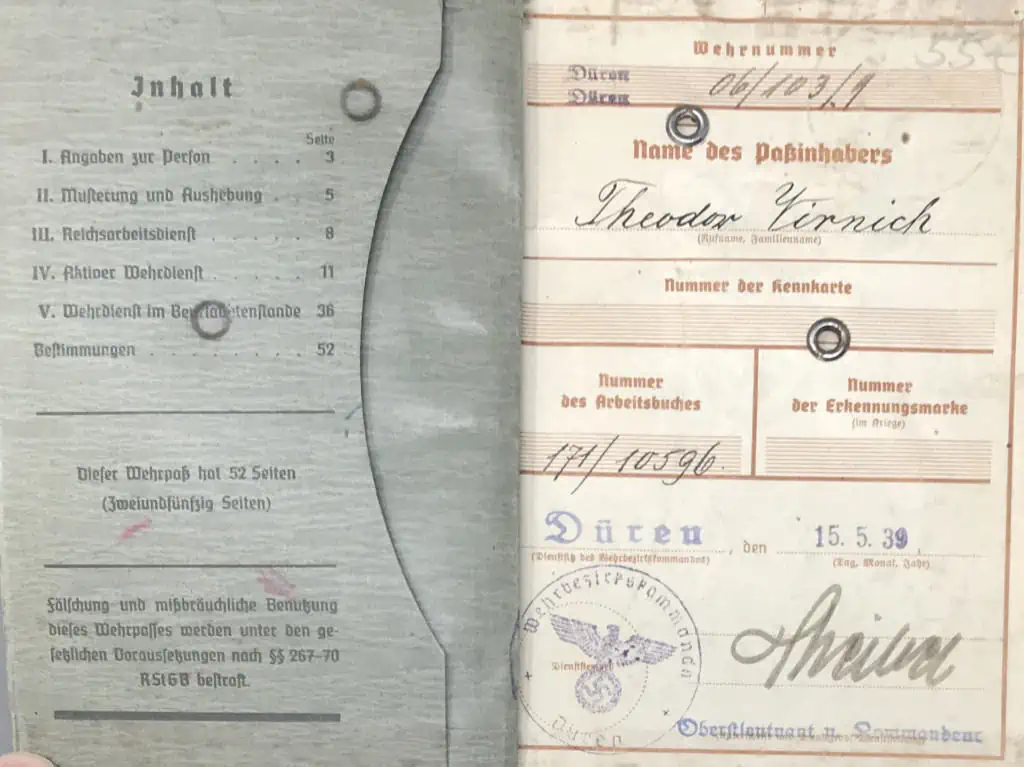 Inhalt
Seite
I. Angaben zur Person . . . . 3
II. Musterung und Aushebung . 5
III. Reichsarbeitsdienst . . . . . 8
IV. Aktiver Wehrdienst . . . . . 11
V. Wehrdienst im Beurlaubtenstande 36
Bestimmungen . . . . . . . . 52
Dieser Wehrpaß hat 52 Seiten
(Zweiundfünfzig Seiten)
Fälschung und mißbräuchliche Benutzung
dieses Wehrpasses werden unter den ge-
setzlichen Voraussetzungen nach §§ 267-70
RStGB bestraft.
Wehrnummer
Düren
Düren 06/103/9
Name des Paßinhabers
Theodor Virnich
(Rufname, Familienname)
Nummer der Kennkarte
Nummer
des Arbeitsbuches
171/10596.
Nummer
der Erkennungsmarke
(im Kriege)
Düren, den 15. 5. 39,
(Dienstsitz des Wehrbezirkskommandos) (Tag, Monat, Jahr)
Wehrbezirkskommando
Düren
Oberstleutnant u. Kommandeur